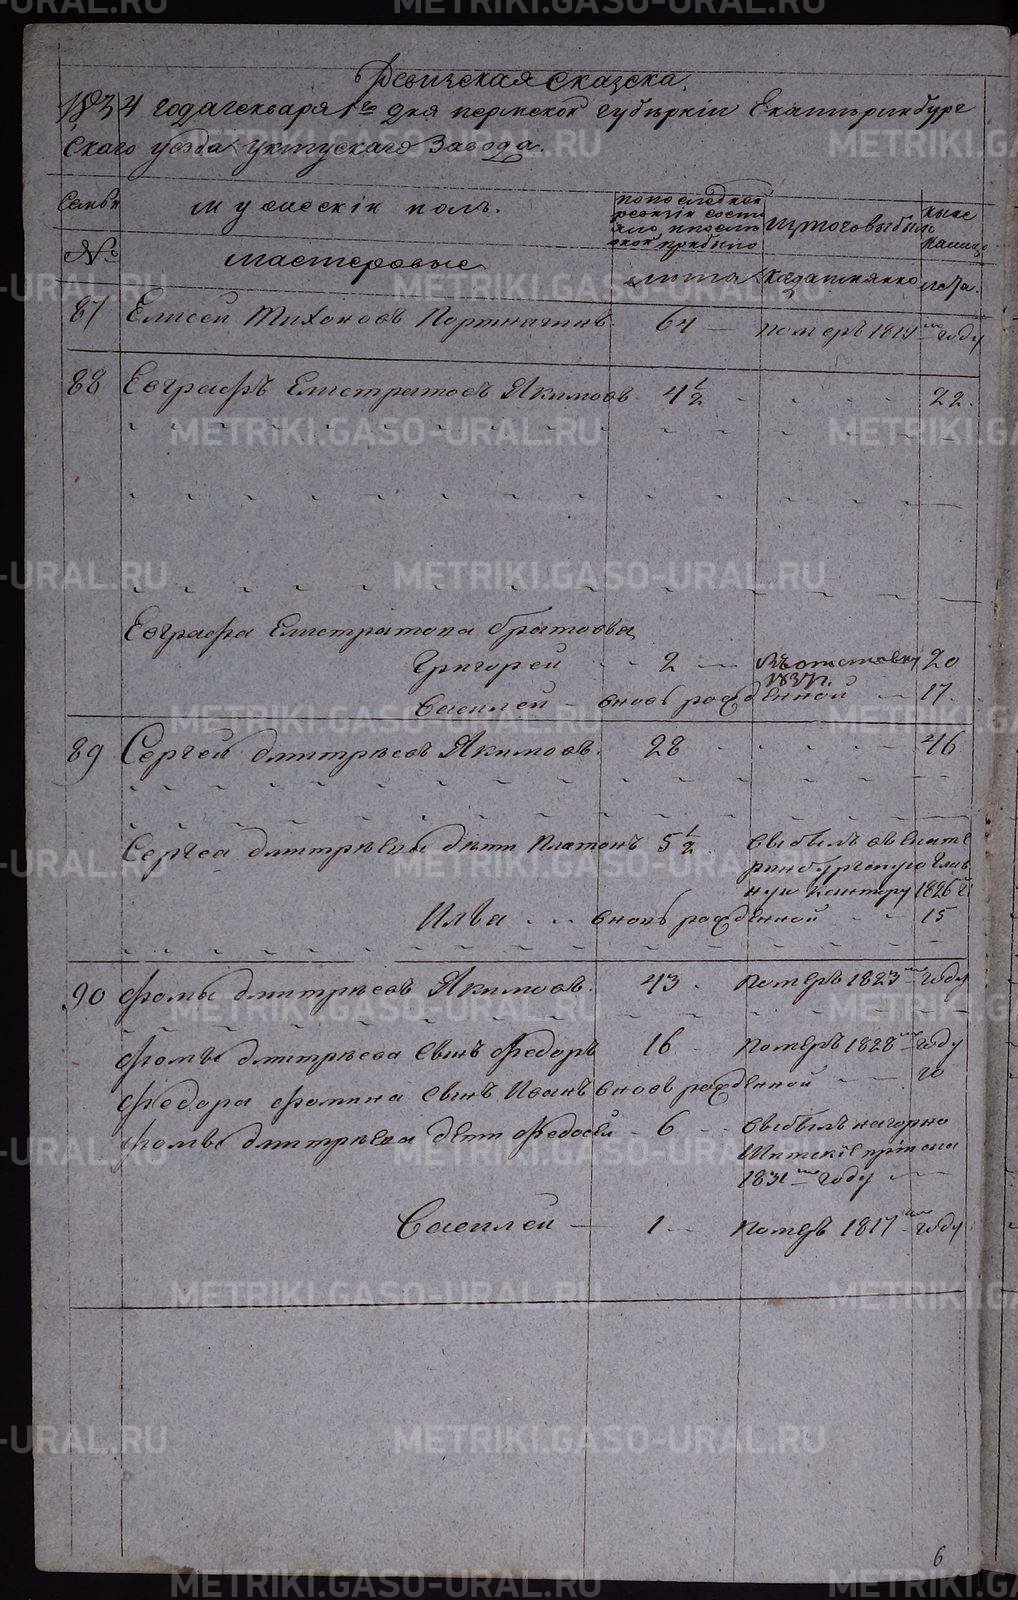 Ревизская сказска.
1834 года генваря 1го дня пермской губернiи Екатеринбург
скаго уезда уктускаго Завода
Семьи
мужескiй полъ.
по последней
ревизiи состо
яло, и после
оной прибыло
изтоговыбыло
ныне
налицо
№
мастеровые
лета
когда именно
лета.
87 Елисей Тихоновъ Портнягинъ. 64 — померъ 1819м году
88 Еографъ Елистратовъ Якимовъ 4 1/2 22.
Еографа Елистратова братовья
Григорей 2 — Въ отставку 20
1837г.
Василей — вновь рожденной — 17.
89 Сергей дмитрѣевъ Якимовъ. 28 46
Сергея дмитрѣева дети Платонъ 5 1/2 выбылъ въ екате
ринбургскую глав
ную контору 1826 й
Илья вновь рожденной 15
90 фома дмитрѣевъ Якимовъ. 43. померъ 1823м году
фомы дмитрѣева сынъ Федоръ 16 померъ 1828м году
Федора фомина сынъ Иванъ вновь рожденной — 10
фомы дмитрѣева дети Федосей — 6 выбылъ нагорно
Щитскiе прiиски
1831м году —
Василей — 1 — померъ 1817м году
6
METRIKI.GASO-URAL.RU